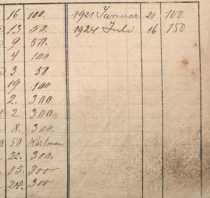 16 100. 1921 Januar 20 100
13 50. 1924 Juli 16 150
9 50.
4 100
3. 50
19. 100.
2. 300.
2 300.
8. 300.
50
22. 300.
15. 300
24. 300